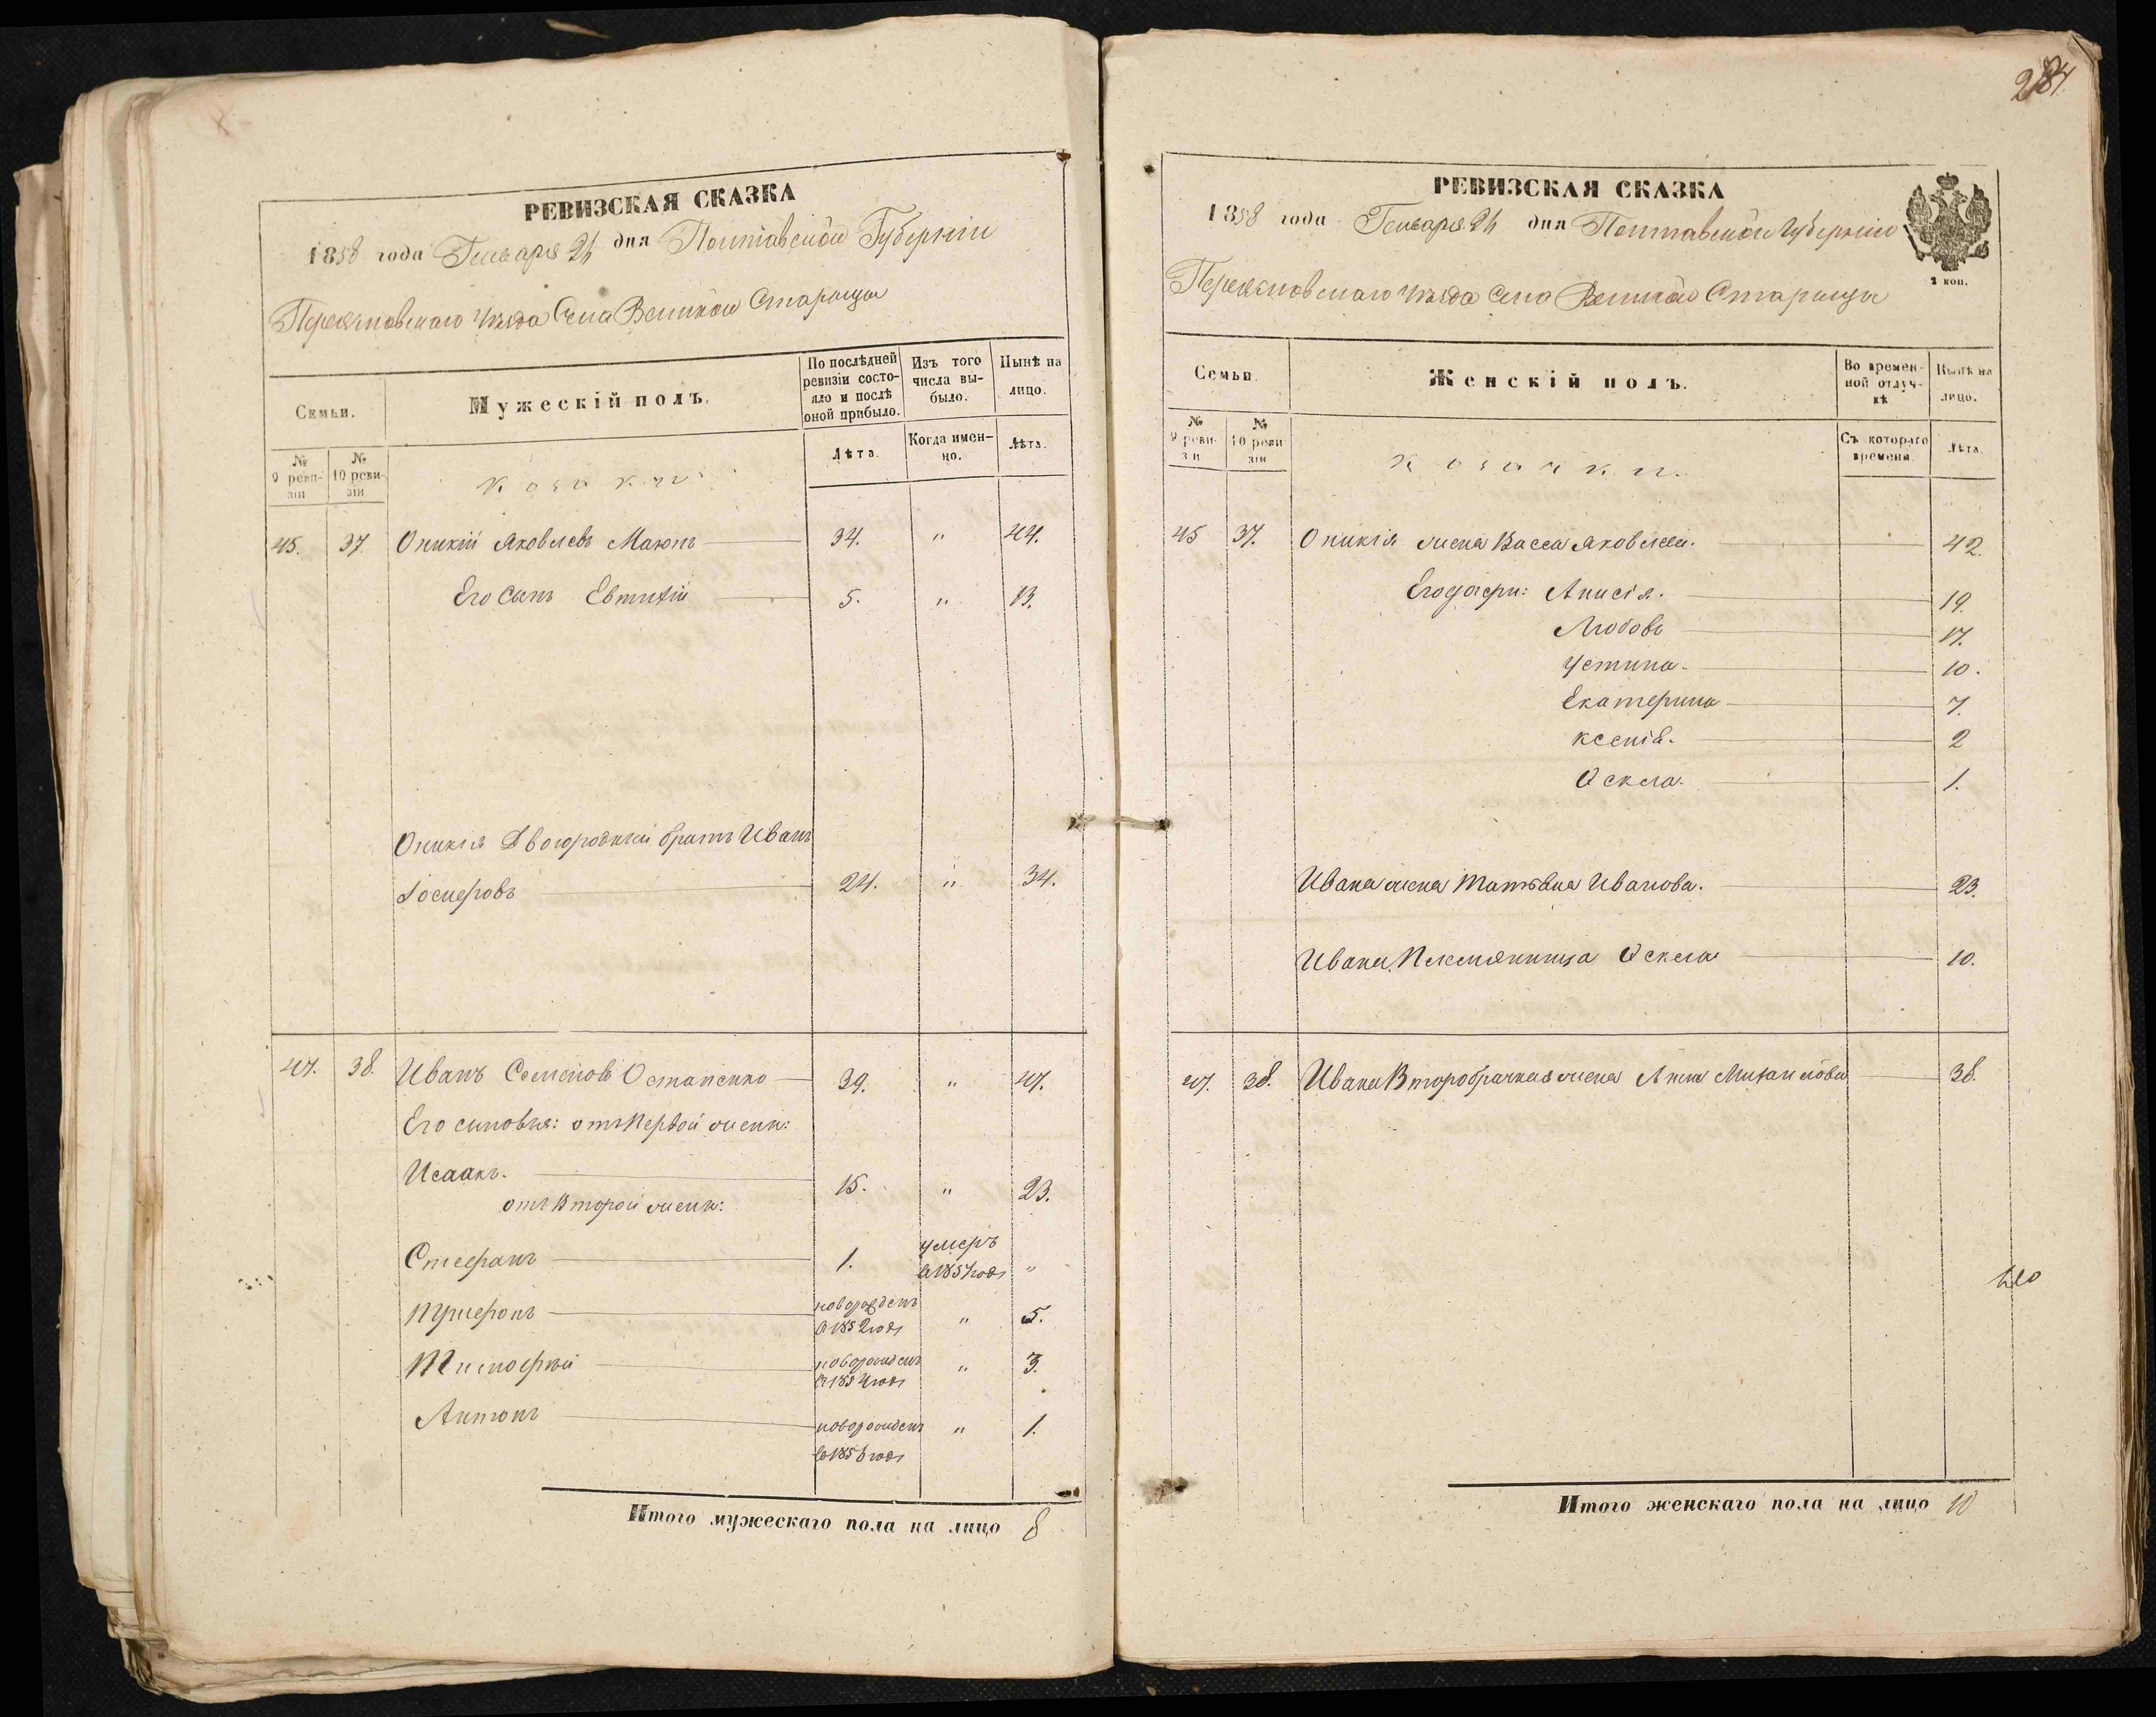 РЕВИЗСКАЯ СКАЗКА
1858 года Генваря 24 дня Полтавской Губерніи
Переяславскаго уѣзда Села Великой Старицы
Семьи.
Мужескій полъ.
По послѣдней ревизіи состояло и послѣ оной прибыло.
Изъ того числа выбыло.
Нынѣ на лицо.
№ 9 ревизіи
№ 10 ревизіи
козаки
Лѣта.
Когда именно.
Лѣта.
45. 37. Оникій Яковлевъ Маюнъ 34. " 44.
Его Сынъ Евтихій 5. " 13.
Оникія Двоюродный братъ Иванъ
24. " 34.
47. 38. Иванъ Семеновъ Остапенко 39. " 47.
Его сыновья: отъ Первой жены:
Исаакъ. 15. " 23.
отъ Второй жены:
Стефанъ 1. умеръ в 1857 годѣ "
Трифонъ новорожденъ в 1852 годѣ " 5.
Тимофѣй новорожденъ в 1854 годѣ " 3.
Антонъ новорожденъ в 1856 годѣ " 1.
Итого мужескаго пола на лицо 8
284.
РЕВИЗСКАЯ СКАЗКА
1858 года Генваря 24 дня Полтавской Губерніи
2 коп.
Переяславскаго уѣзда Села Великой Старицы
Семьи.
Женскій полъ.
Во временной отлучкѣ
Нынѣ на лицо.
№ 9 ревизіи
№ 10 ревизіи
козачки.
Съ котораго времени.
Лѣта.
45 37. Оникія жена Васса Яковлева. 42.
Его дочери: Анисія. 19.
Любовь 17.
Устина 10.
Екатерина 7.
Ксенія. 2
Фекла. 1.
Ивана жена Татьяна Иванова. 23.
Ивана Племянница Фекла 10.
47. 38. Ивана Второбрачная жена Анна Михайлова 38.
Итого женскаго пола на лицо 10